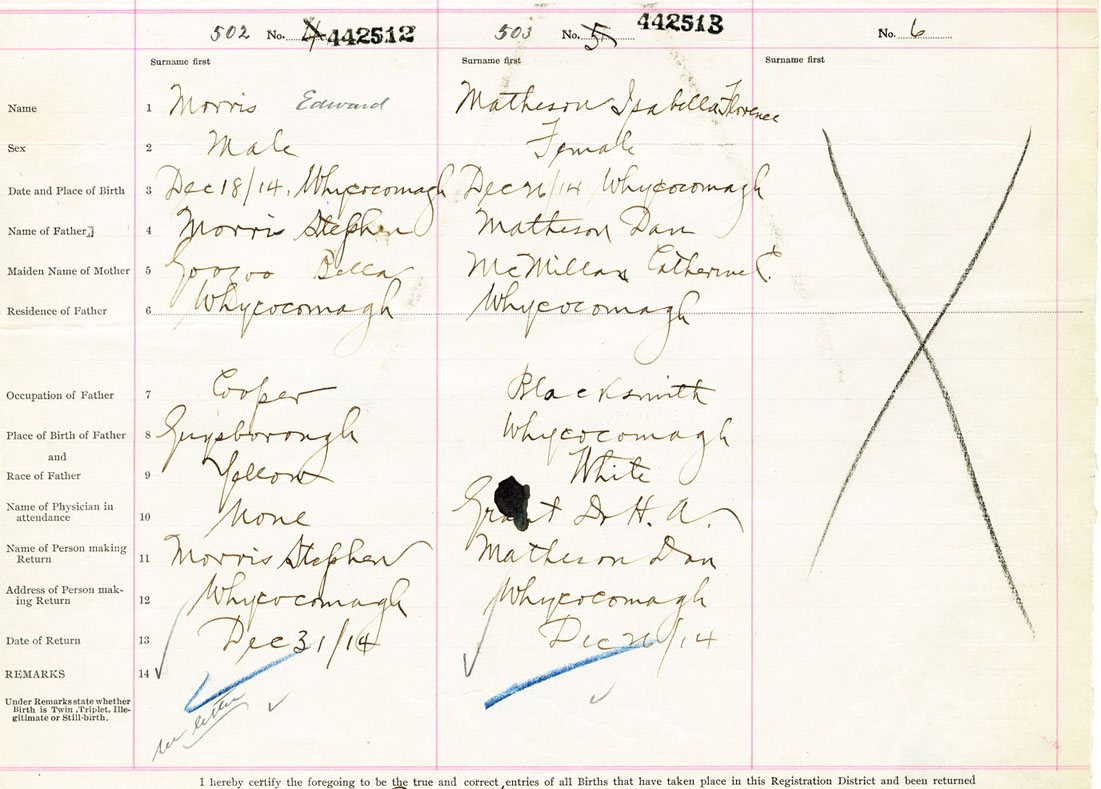 502 No. 4 442512 503 No. 5 442513 No. 6
Surname first Surname first Surname first
Name 1 Morris Edward Matheson Isabella Florence
Sex 2 Male Female
Date and Place of Birth 3 Dec 18/14, Whycocomagh Dec 26/14, Whycocomagh
Name of Father 4 Morris Stephen Matheson Dan
Maiden Name of Mother 5 Googoo Bella McMillan Catherine C.
Residence of Father 6 Whycocomagh Whycocomagh
Occupation of Father 7 Cooper Blacksmith
Place of Birth of Father 8 Guysborough Whycocomagh
and
Race of Father 9 Yellow White
Name of Physician in
attendance 10 None Grant Dr H. A.
Name of Person making
Return 11 Morris Stephen Matheson Dan
Address of Person mak-
ing Return 12 Whycocomagh Whycocomagh
Date of Return 13 Dec 31/14 Dec 26/14
REMARKS 14
Under Remarks state whether
Birth is Twin, Triplet, Ille-
gitimate or Still-birth.
letter
I hereby certify the foregoing to be the true and correct entries of all Births that have taken place in this Registration District and been returned